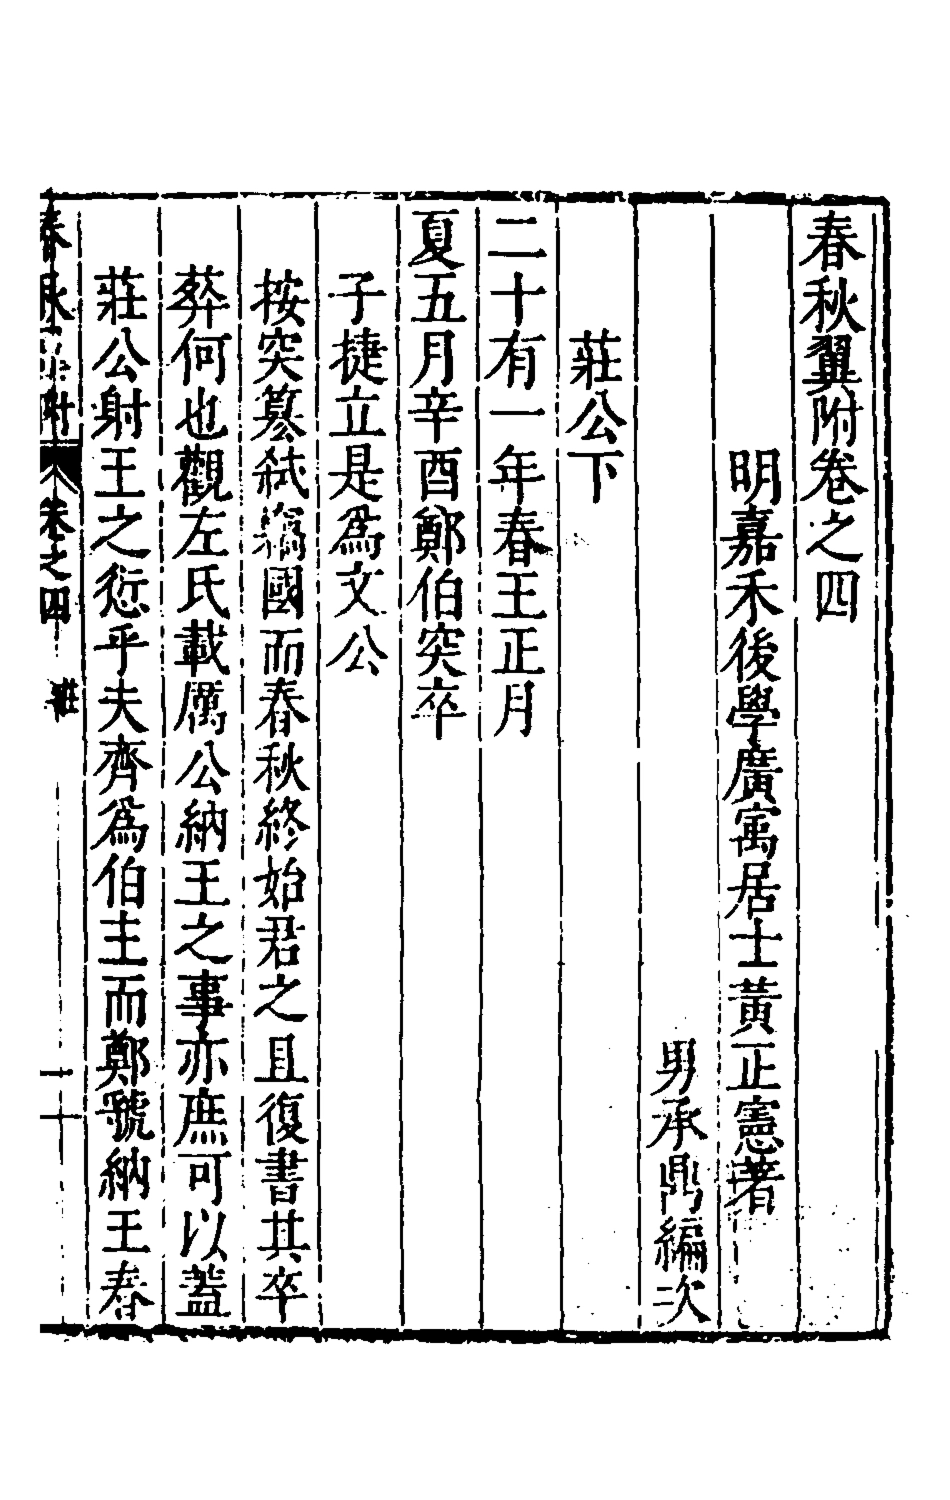 春秋翼附卷之四
明嘉禾後學廣寓居士黃正憲著
男承鼎編次
莊公下
二十有一年春王正月
夏五月辛酉鄭伯突卒
子捷立是爲文公
按突簒弑竊國而春秋終始君之且復書其卒
葬何也觀左氏載厲公納王之事亦庶可以蓋
莊公射王之愆乎夫齊爲伯主而鄭虢納王春
春秋翼附 卷之四 莊 一